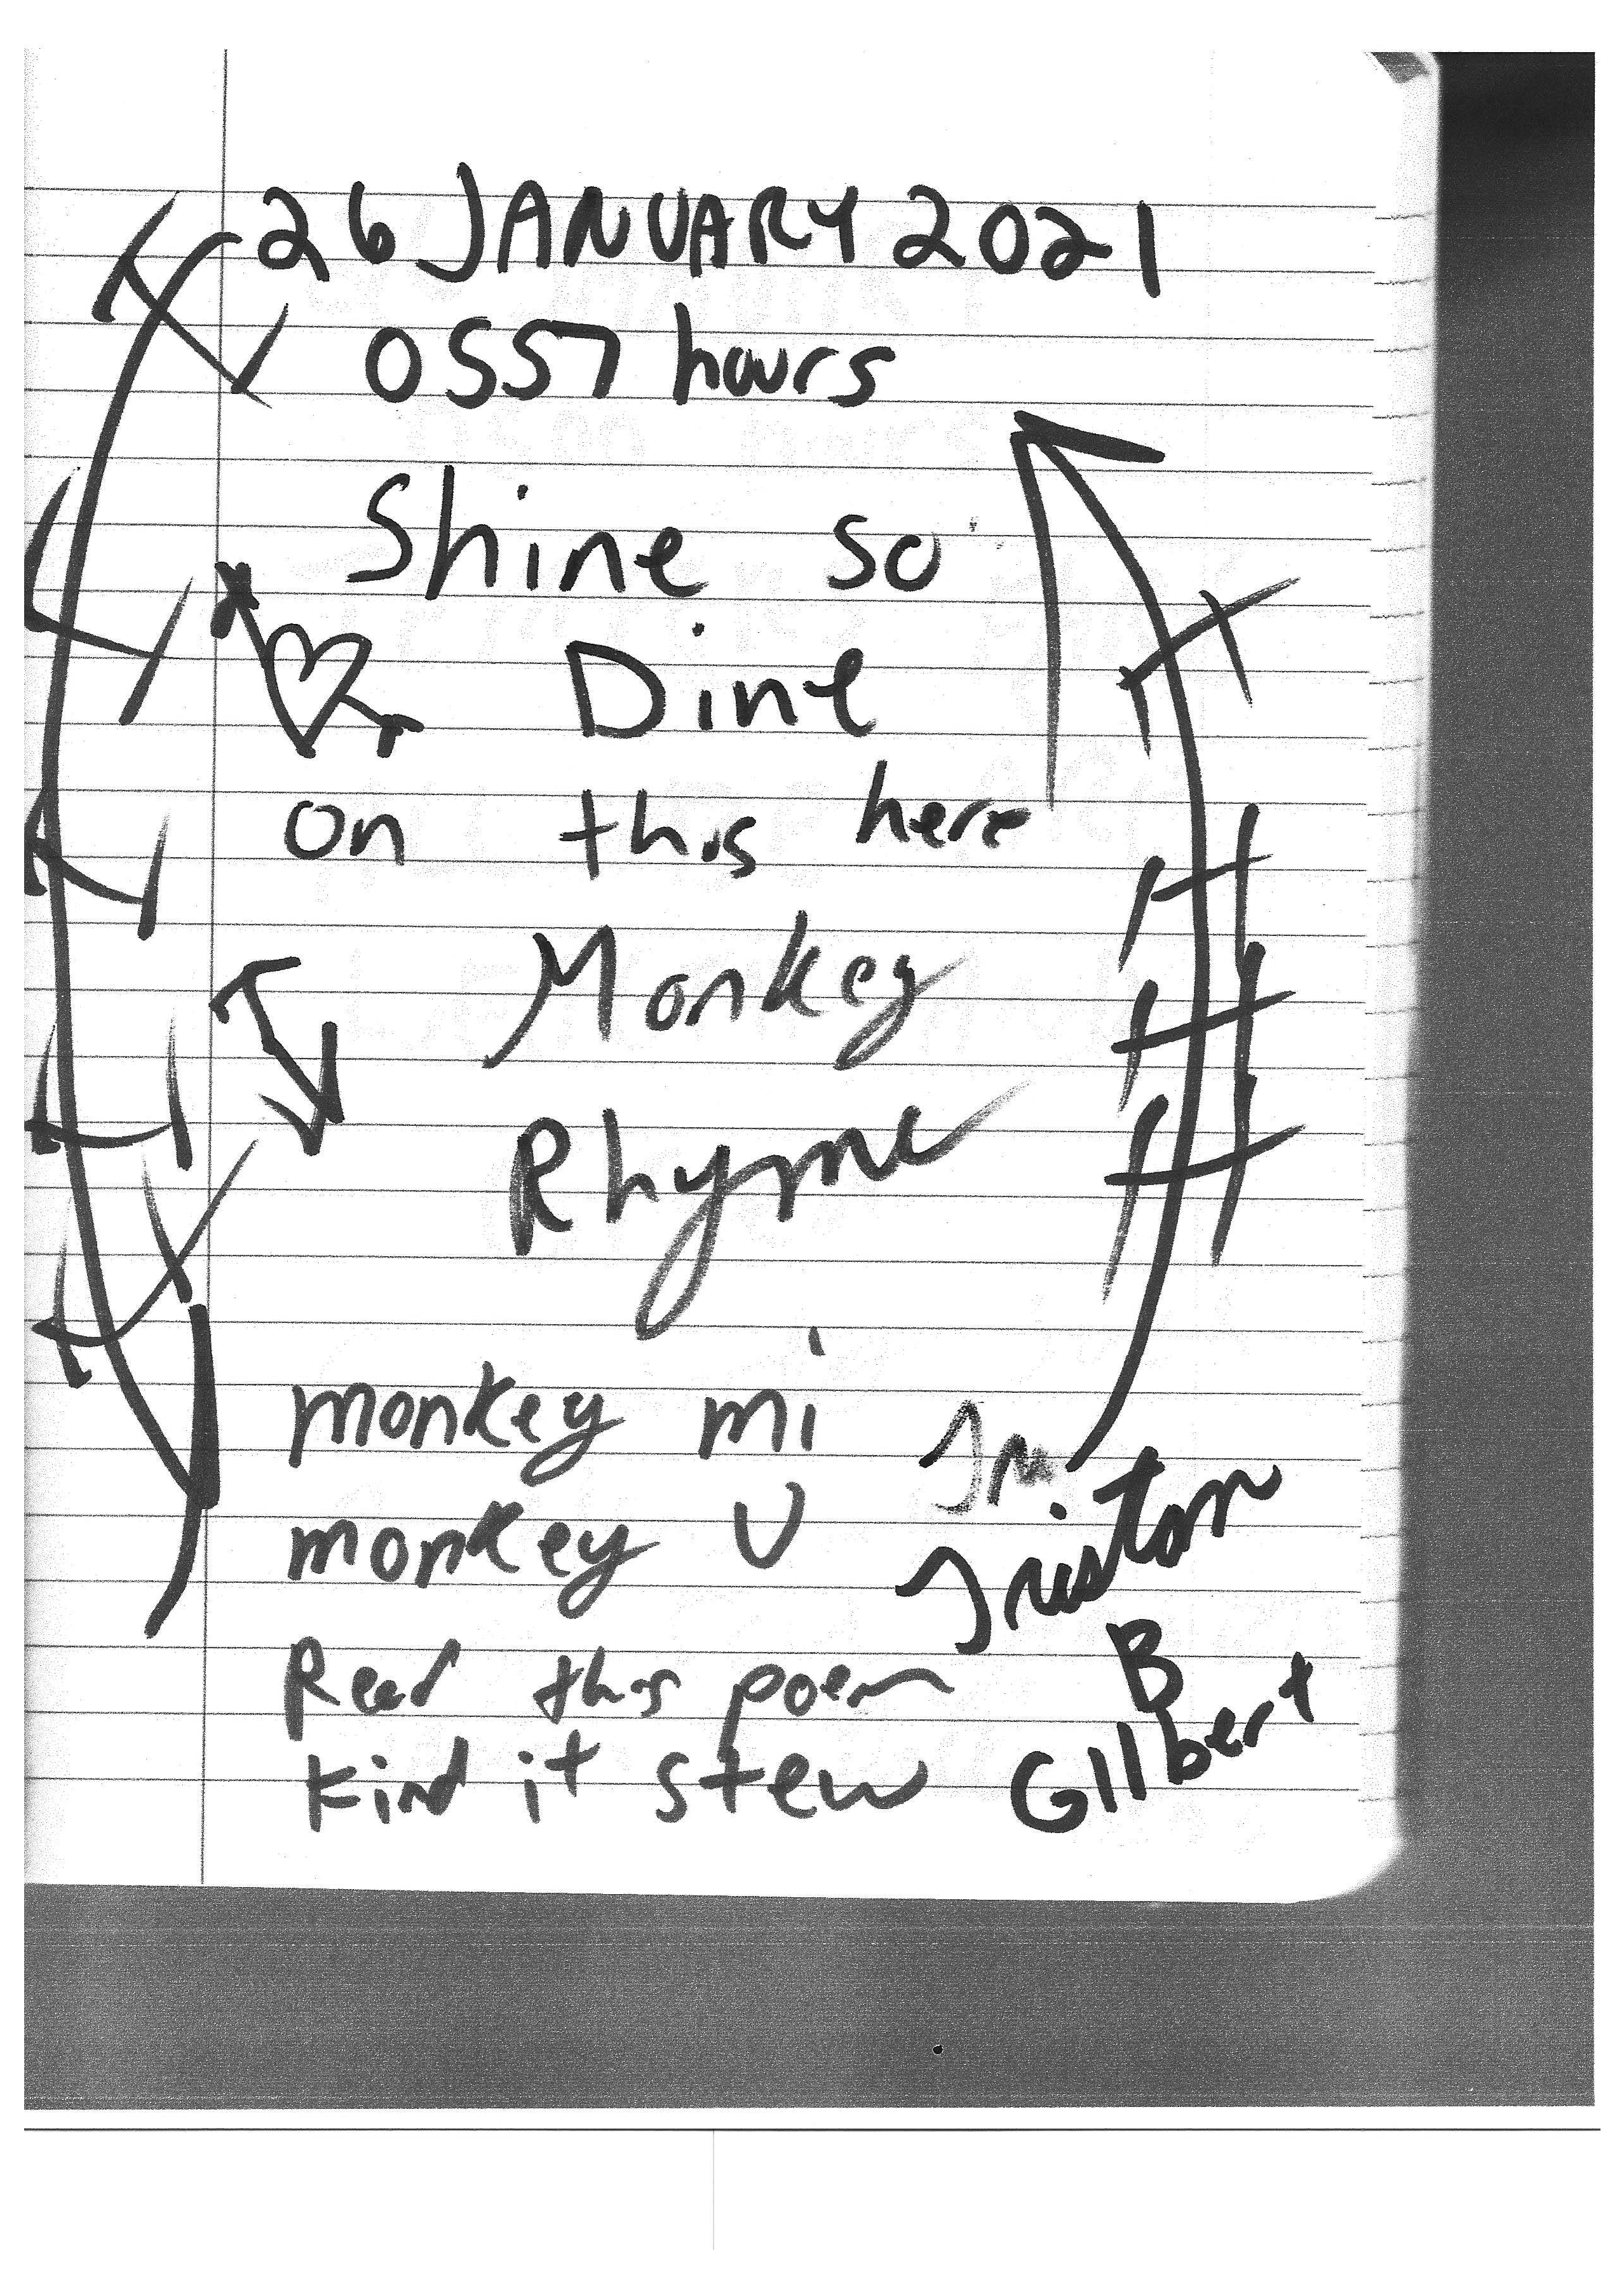 26 JANUARY 2021
0557 hours
Shine so
Dine
on this here
Monkey
Rhyme
monkey mi
monkey U
Read this poem
Kind it stew
Tristan
B
Gilbert